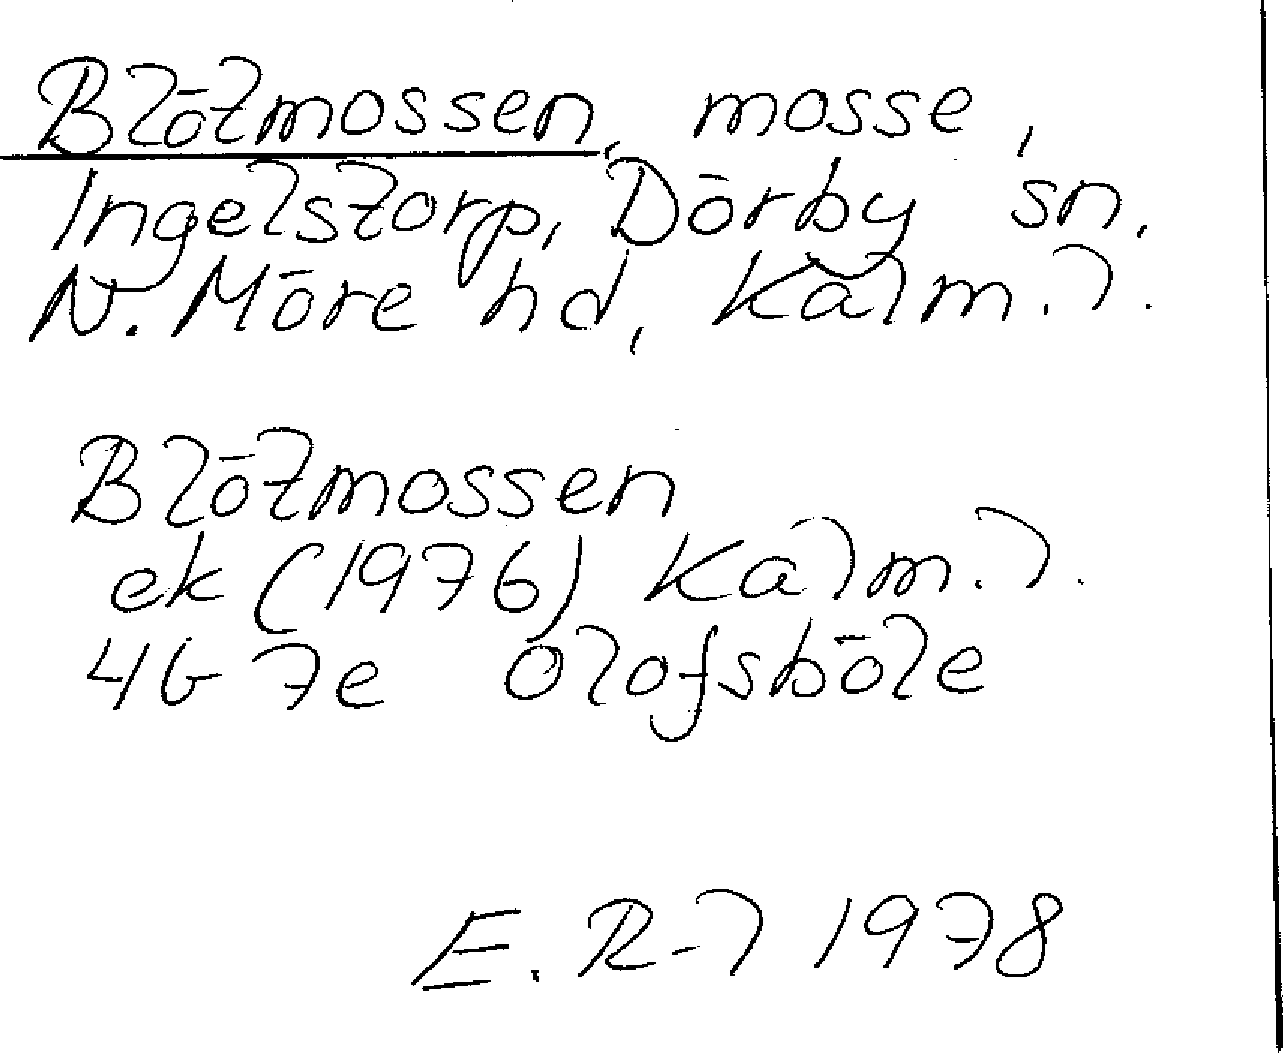 Blötmossen, mosse,
Ingelstorp, Dörby sn.
N. Möre hd, Kalm. l.
Blötmossen
ek (1976) Kalm. l.
4G 7e Olofsböle
E. R-l 1978